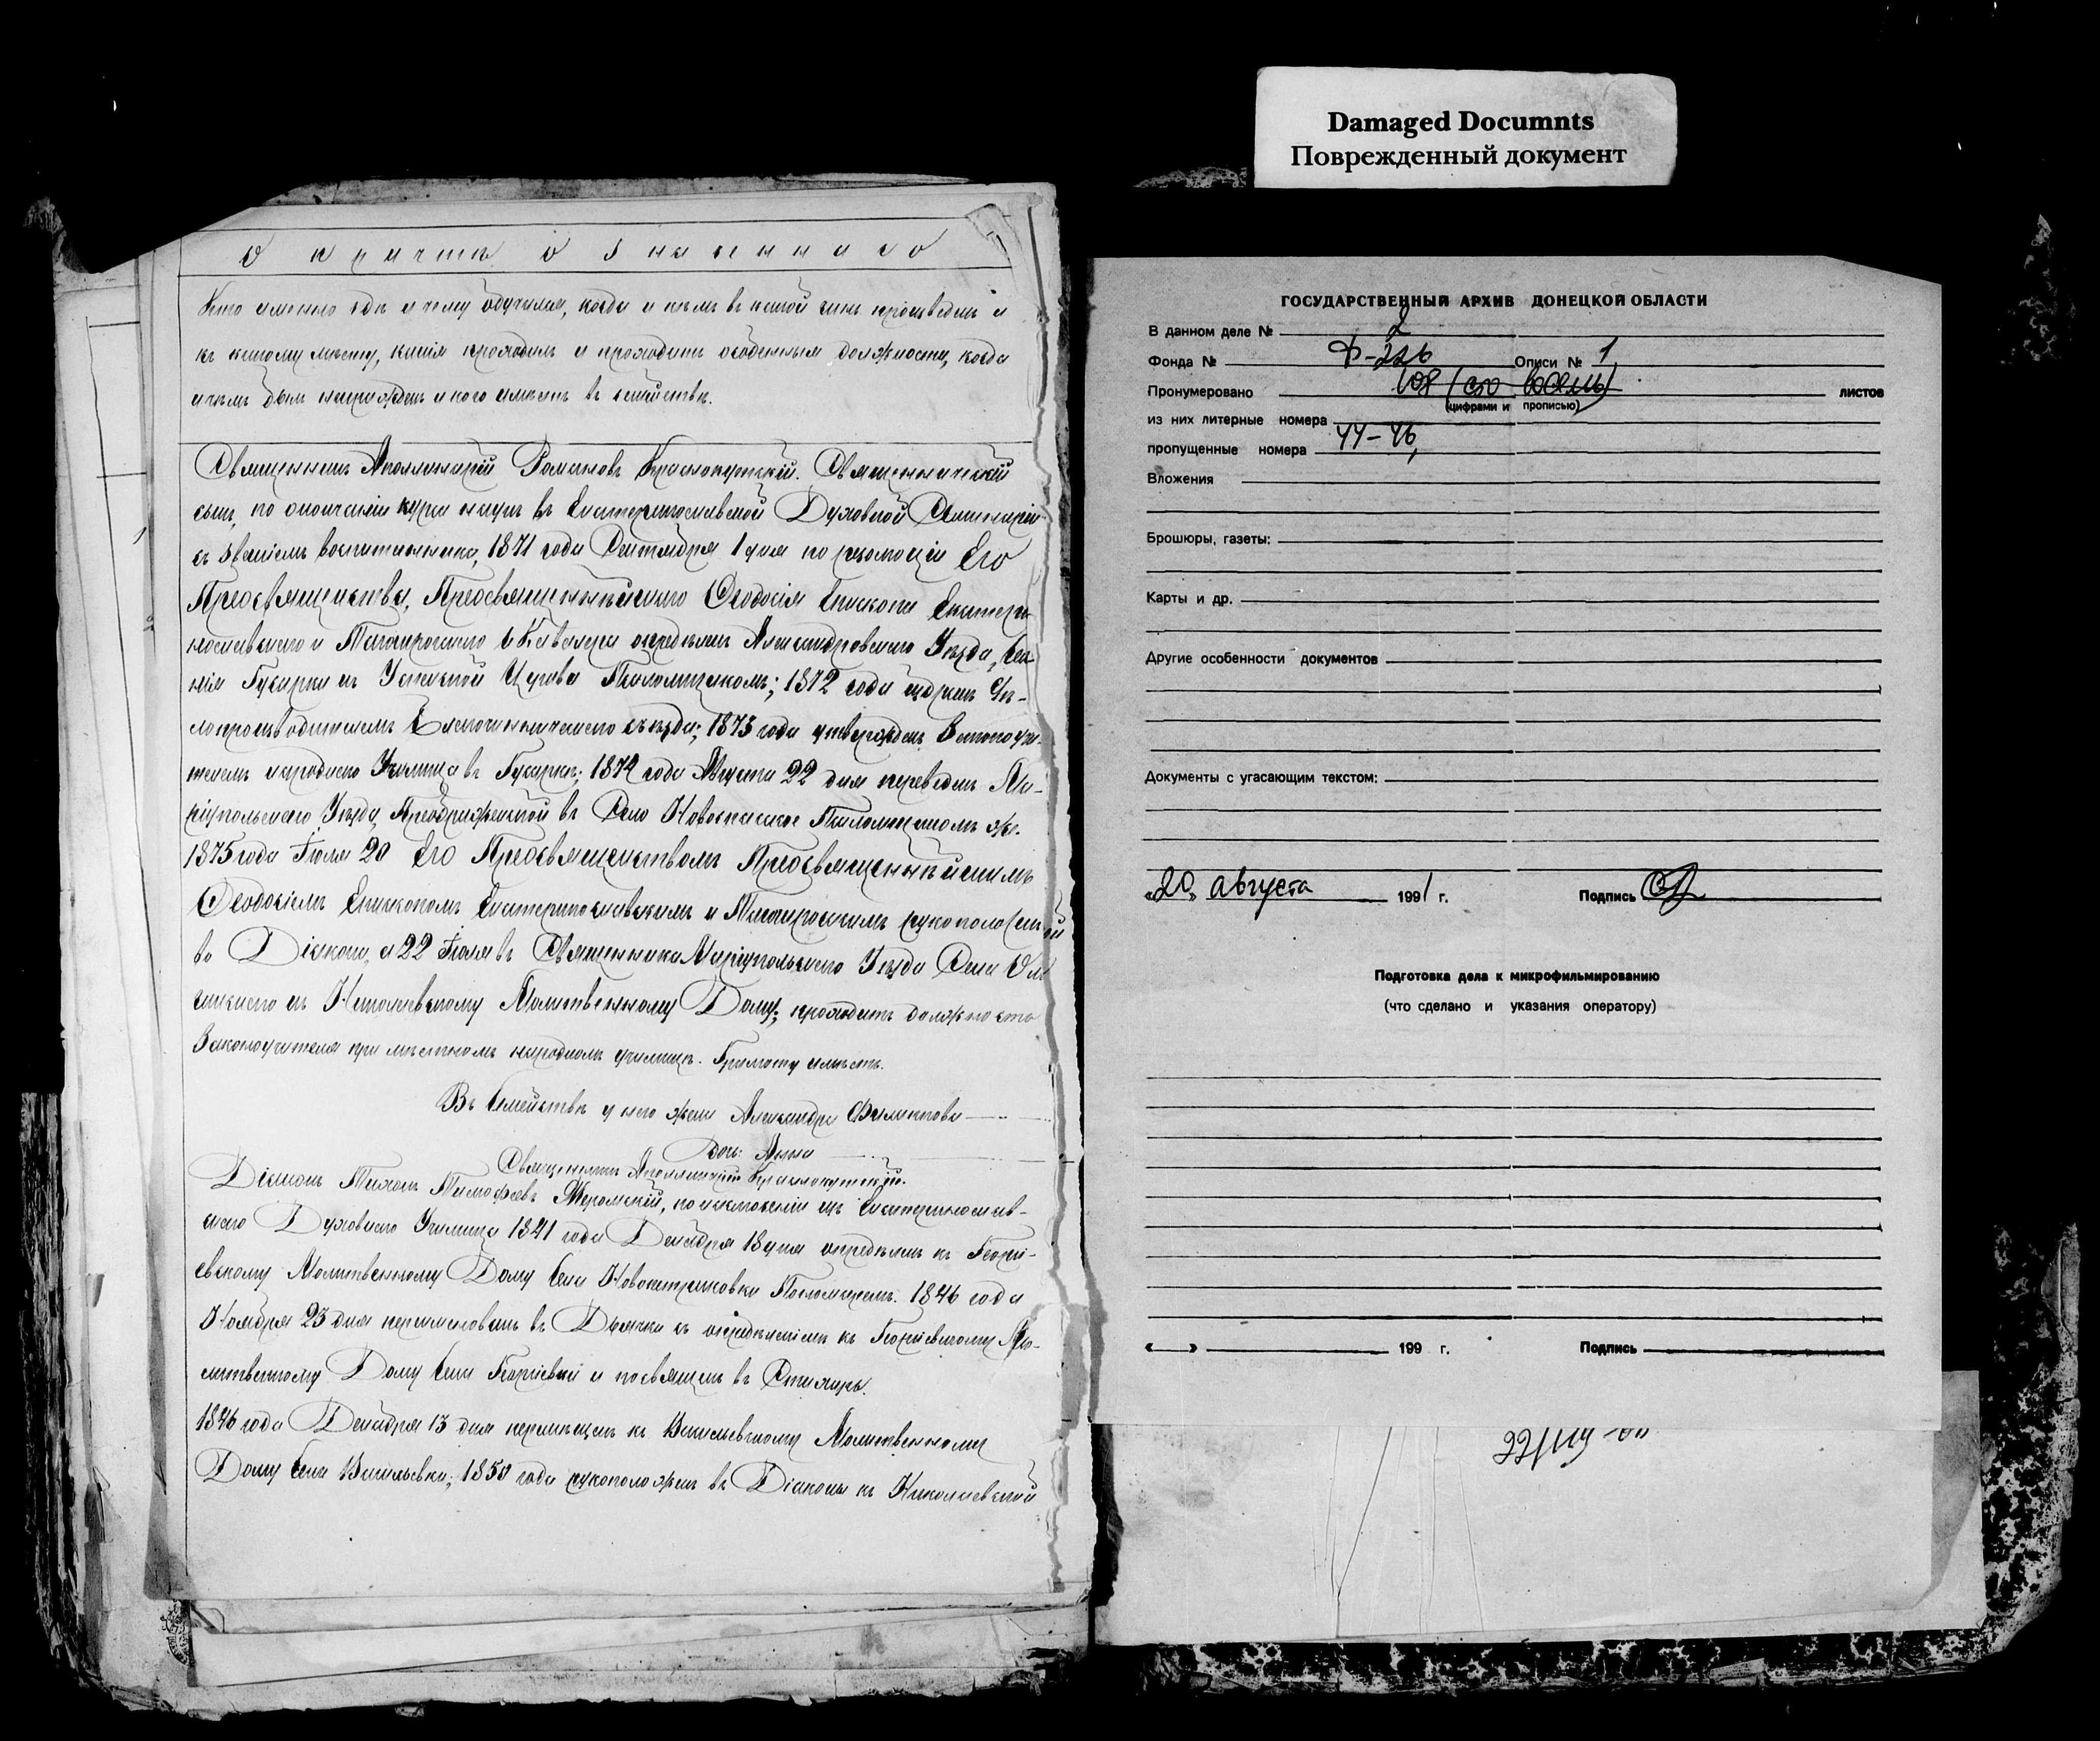 Damaged Documnts
Поврежденный документ
О причтѣ означеннаго
Кто именно гдѣ и чему обучился, когда и кѣмъ въ какой чинъ произведенъ и
къ какому мѣсту, какія проходилъ и проходитъ особенныя должности, когда
и чѣмъ былъ награжденъ и кого имѣетъ въ семействѣ.
Священникъ Аполлинарій Романовъ Краснокутскій. Священническій
сынъ, по окончаніи курса наукъ въ Екатеринославской Духовной Семинаріи
съ званіемъ воспитанника, 1871 года Сентября 1 дня по резолюціи Его
Преосвященства, Преосвященнѣйшаго Ѳеодосія Епископа Екатери-
нославскаго и Таганрогскаго и Кавалера опредѣленъ Александровскаго Уѣзда, Се-
нія Гусарки къ Успенской Церкви Псаломщикомъ; 1872 года избранъ Дѣ-
лопроизводителемъ Благочинническаго съѣзда; 1873 года утвержденъ Законоучи-
телемъ народнаго Училища въ Гусаркѣ; 1874 года Августа 22 дня переведенъ Ма-
ріупольскаго Уѣзда, Преображенской въ Село Новоспаское Псаломщикомъ же.
1875 года Іюля 20 Его Преосвященствомъ Преосвященнѣйшимъ
Ѳеодосіемъ Епископомъ Екатеринославскимъ и Таганрогскимъ рукоположенъ
во Діакона, а 22 Іюля въ Священника Маріупольскаго Уѣзда Села
къ Николаевскому Молитвенному Дому; проходитъ должность
Законоучителя при мѣстномъ народномъ училищѣ. Грамоту имѣетъ.
Въ Семействѣ у него жена Александра Филиппова
Дочь Анна
Священникъ Аполлинарій Краснокутскій.
Діаконъ Тихонъ Тимофеевъ Жеромскій, по исключеніи изъ Екатеринослав-
скаго Духовнаго Училища 1841 года Декабря 18 дня опредѣленъ къ Георгі-
евскому Молитвенному Дому Села Новопетриковки Пономаремъ. 1846 года
Ноября 23 дня переименованъ въ Дьячки съ опредѣленіемъ къ Георгіевскому Мо-
литвенному Дому Села Георгіевки и посвященъ въ Стихарь.
1846 года Декабря 13 дня перемѣщенъ къ Васильевскому Молитвенному
Дому Села Васильевки; 1850 года рукоположенъ въ Діаконы къ Николаевской
ГОСУДАРСТВЕННЫЙ АРХИВ ДОНЕЦКОЙ ОБЛАСТИ
В данном деле № 2
Фонда № Ф-226 Описи № 1
Пронумеровано 108 (сто восемь) листов
(цифрами и прописью)
из них литерные номера
пропущенные номера 44-46,
Вложения
Брошюры, газеты:
Карты и др.
Другие особенности документов
Документы с угасающим текстом:
«20» августа 1991 г. Подпись
Подготовка дела к микрофильмированию
(что сделано и указания оператору)
« » 199 г. Подпись